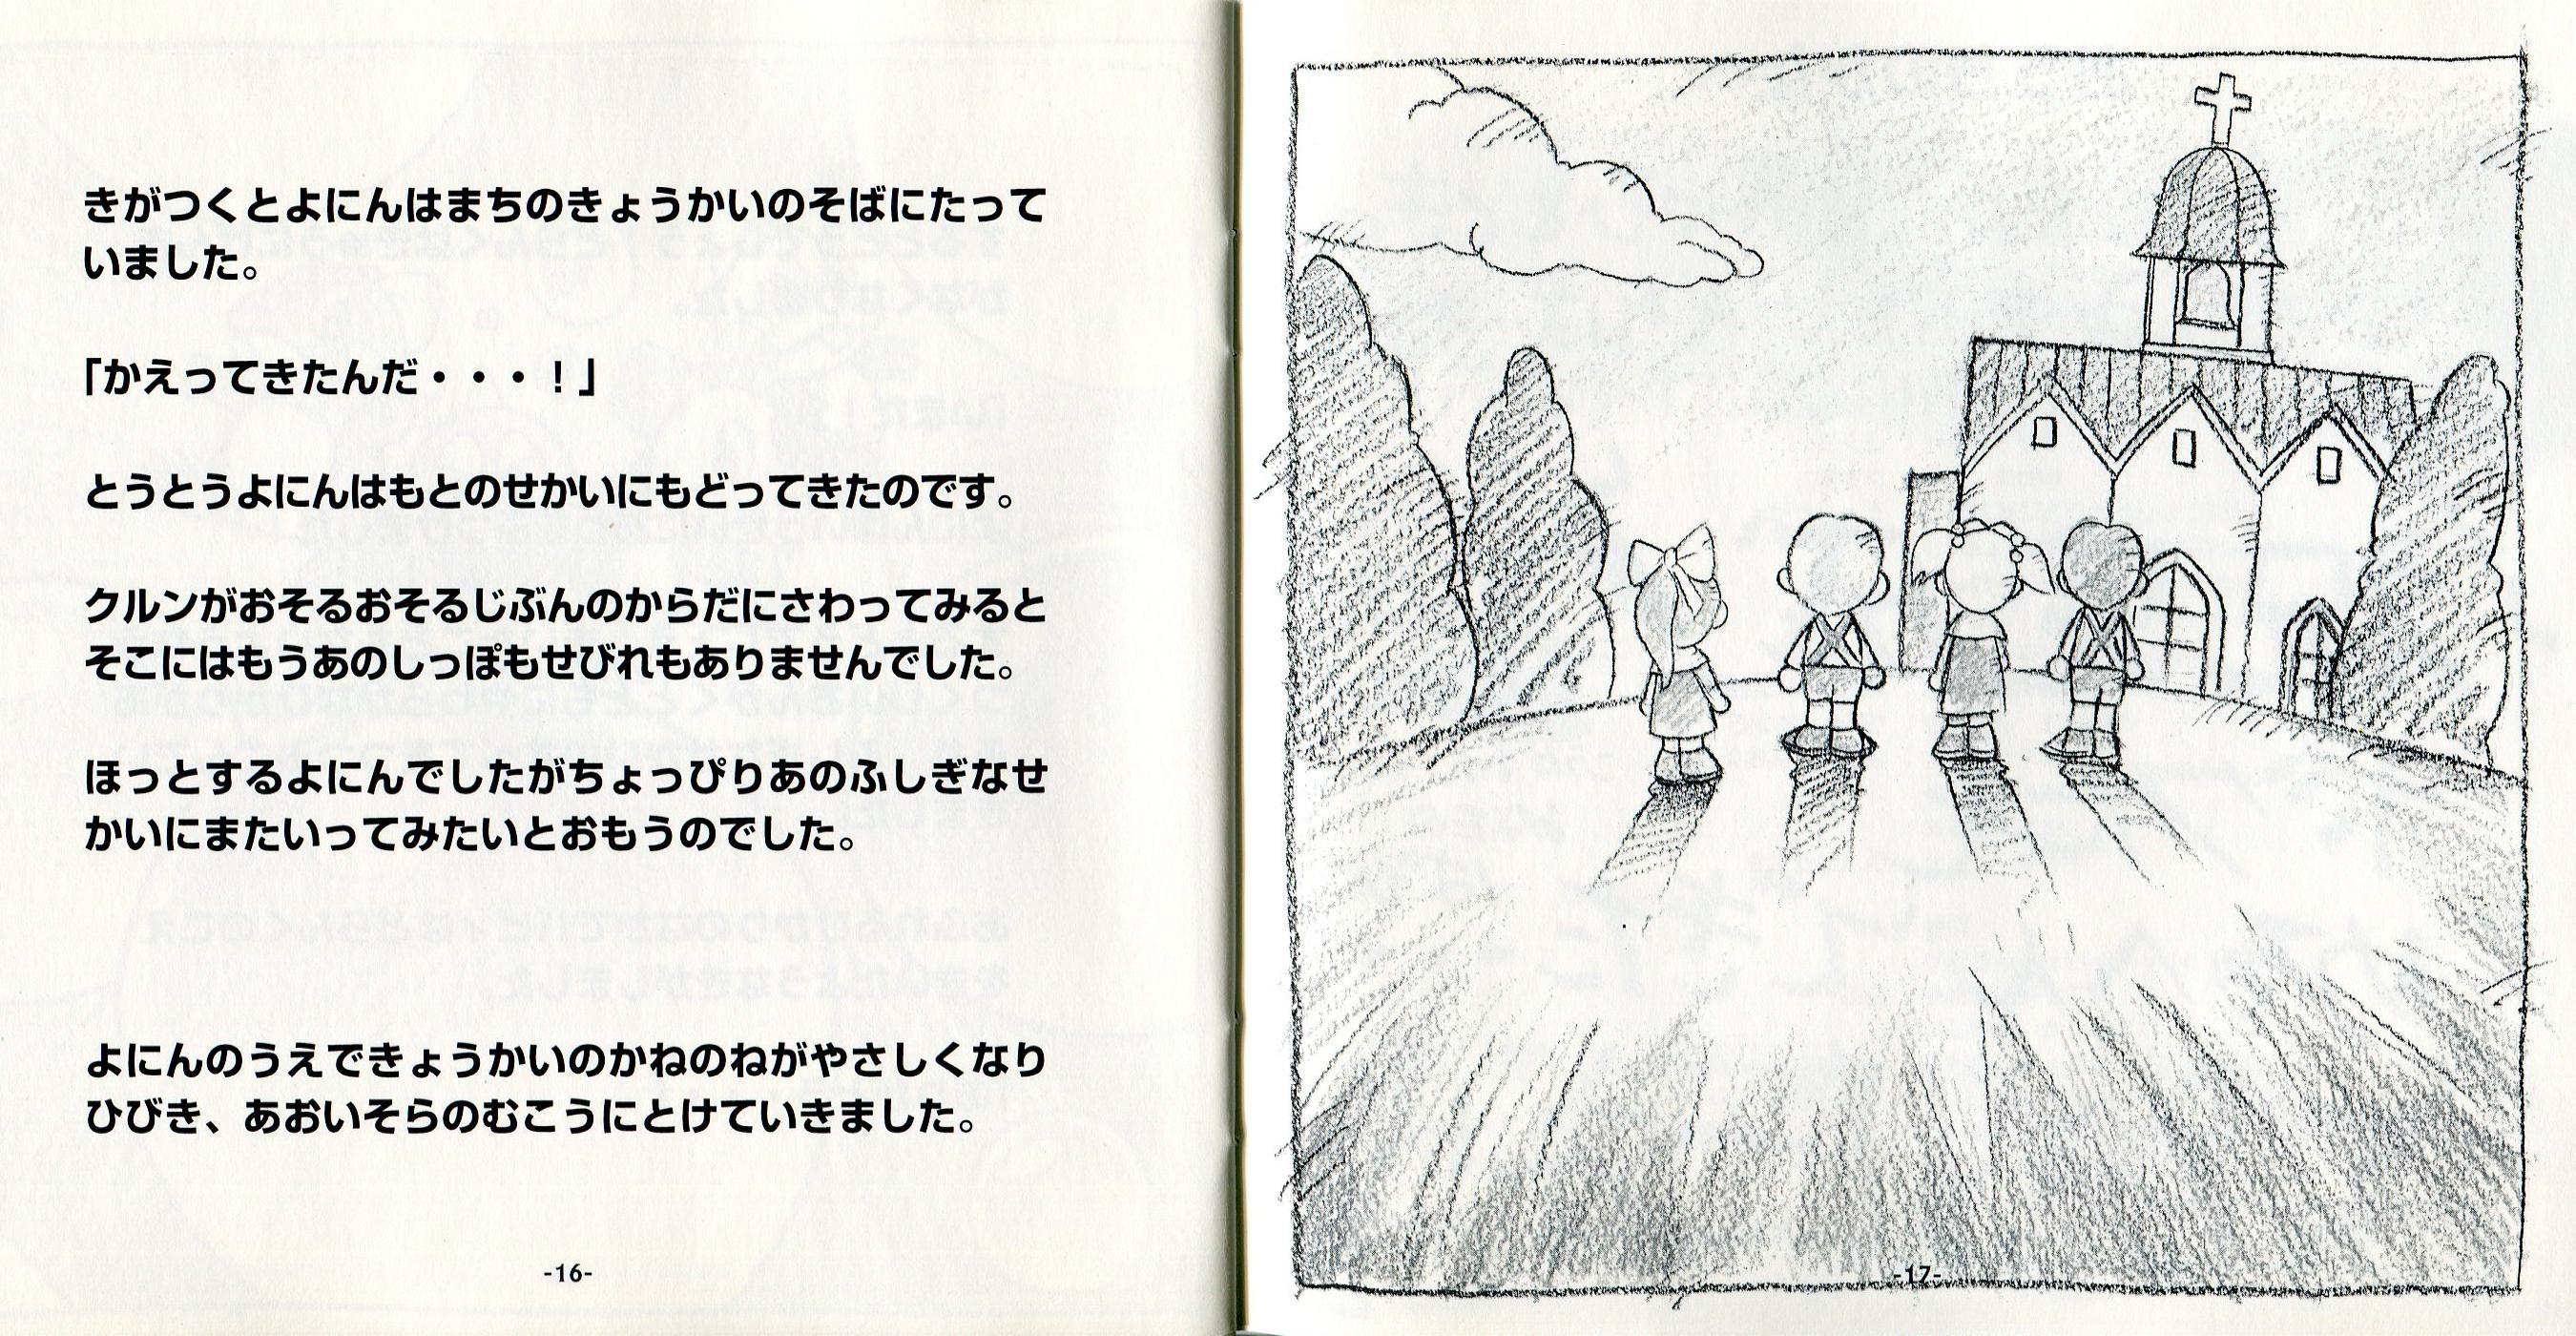 きがつくとよにんはまちのきょうかいのそばにたって
いました。
「かえってきたんだ・・・！」
とうとうよにんはもとのせかいにもどってきたのです。
クルンがおそるおそるじぶんのからだにさわってみると
そこにはもうあのしっぽもせびれもありませんでした。
ほっとするよにんでしたがちょっぴりあのふしぎなせ
かいにまたいってみたいとおもうのでした。
よにんのうえできょうかいのかねのねがやさしくなり
ひびき、あおいそらのむこうにとけていきました。
-16-
-17-